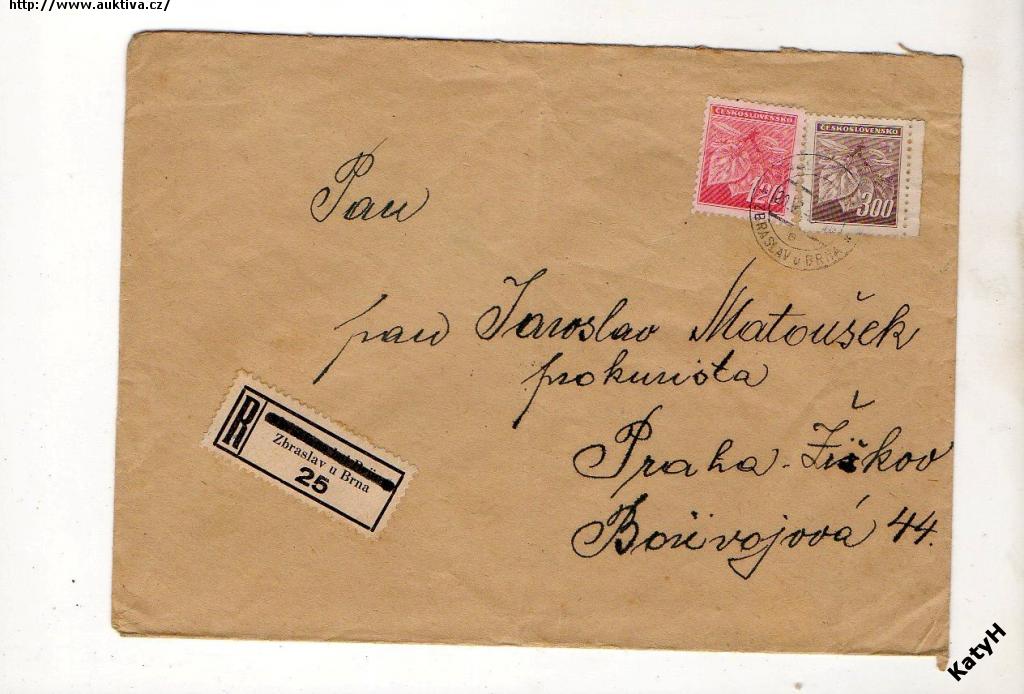 http://www.auktiva.cz/
ČESKOSLOVENSKO
ČESKOSLOVENSKO
300
ZBRASLAV u BRNA
Pan
pan Jaroslav Matoušek
prokurista
Praha-Žižkov
Bořivojová 44.
R
Zbraslav u Brna
25
KatyH